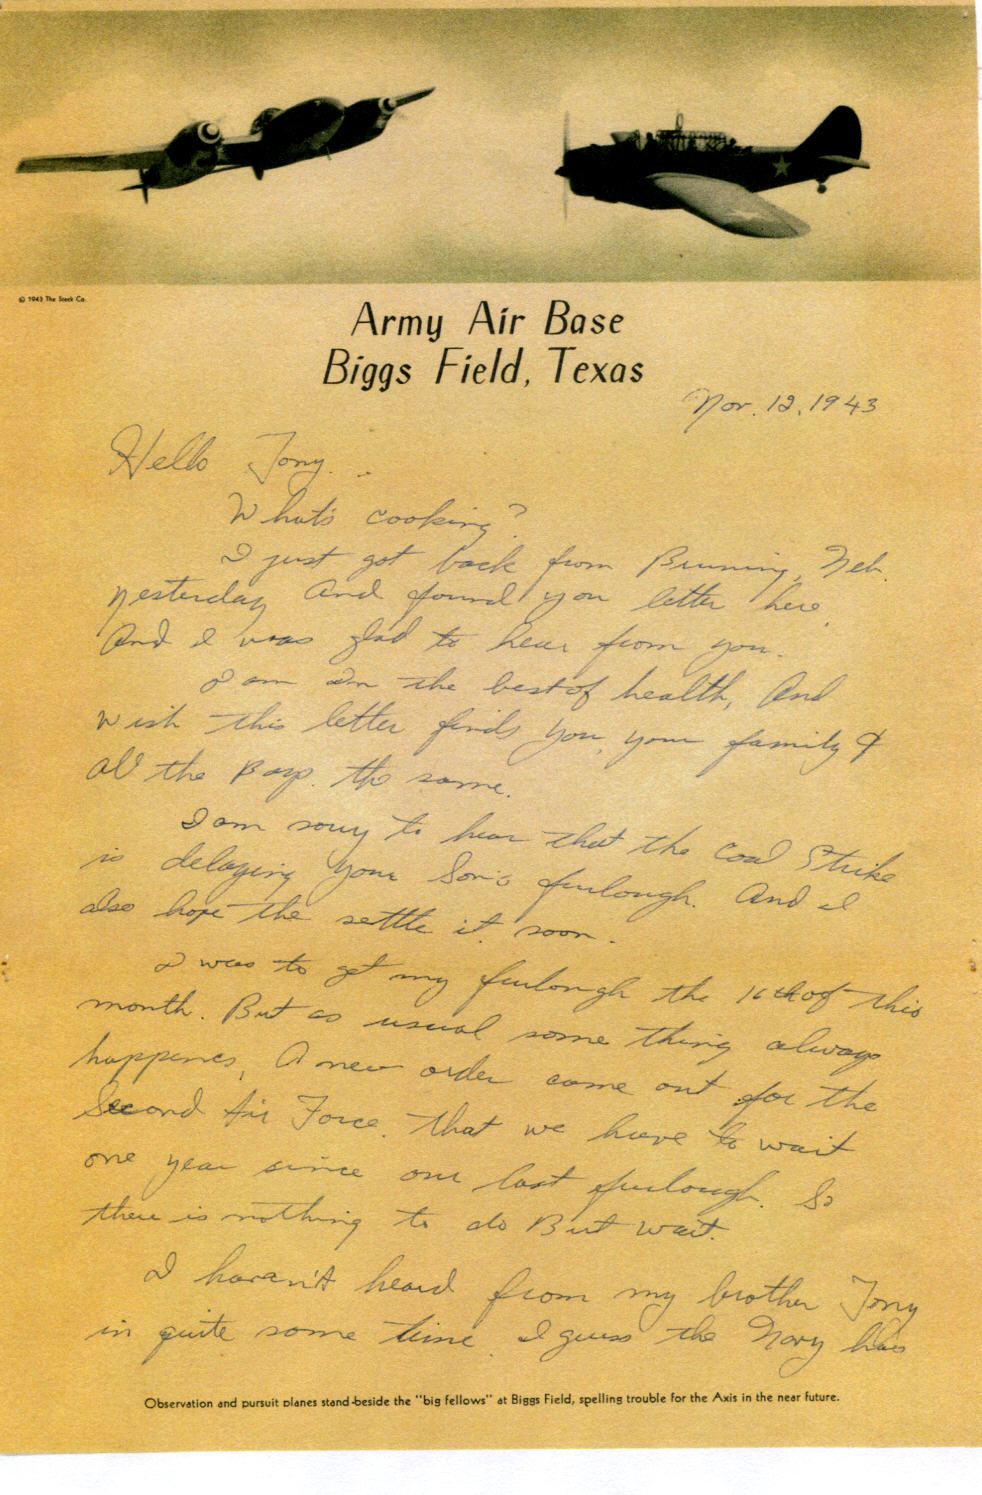 © 1943 The Steck Co.
Army Air Base
Biggs Field, Texas
Nov. 12, 1943
Hello Tony.
What's cooking?
I just got back from Bruning, Neb.
yesterday And found you letter here.
And I was glad to hear from you.
I am In the best of health, And
wish this letter finds you, your family &
all the Boys. the same.
I am sorry to hear that the Coal Strike
is delaying your Son's furlough. And I
also hope the settle it soon.
I was to get my furlough the 16th of this
month. But as usual some thing always
happenes, A new order came out for the
Second Air Force. That we have to wait
one year since our last furlough. So
there is nothing to do But wait.
I haven't heard from my brother Tony
in quite some time. I guess the Navy has
Observation and pursuit planes stand-beside the "big fellows" at Biggs Field, spelling trouble for the Axis in the near future.